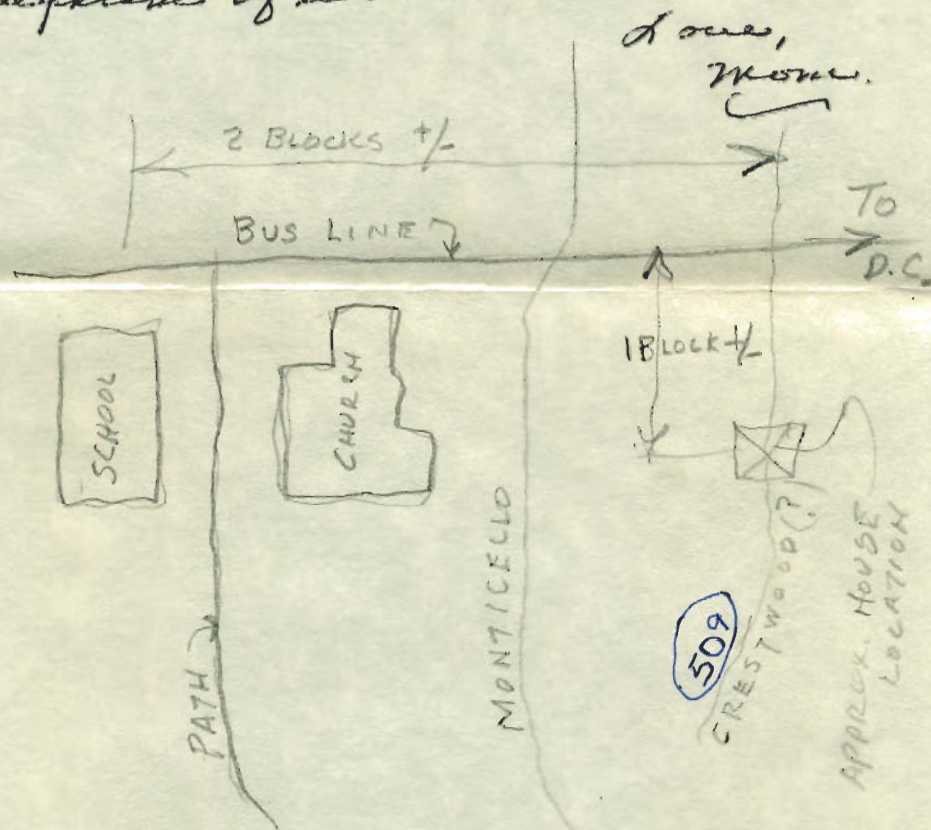 of
Love,
Mom.
2 BLOCKS +/-
BUS LINE
TO
D.C.
1 BLOCK +/-
SCHOOL
CHURCH
PATH
MONTICELLO
509
CRESTWOOD(?)
APPROX. HOUSE
LOCATION